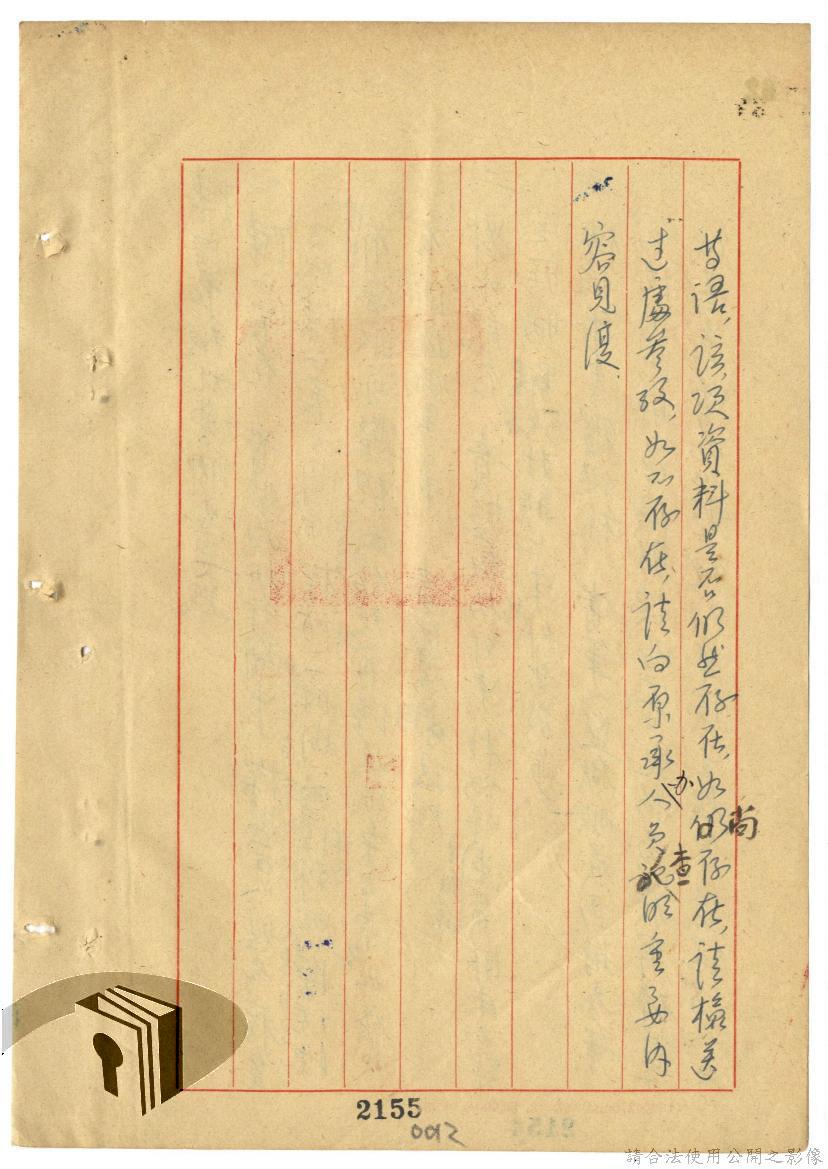 等語，該項資料是否仍然存在，如尚存在，請檢送
過處參考，如不存在，請向原承办人員查明重要內
容見復
2155
092
請合法使用公開之影像